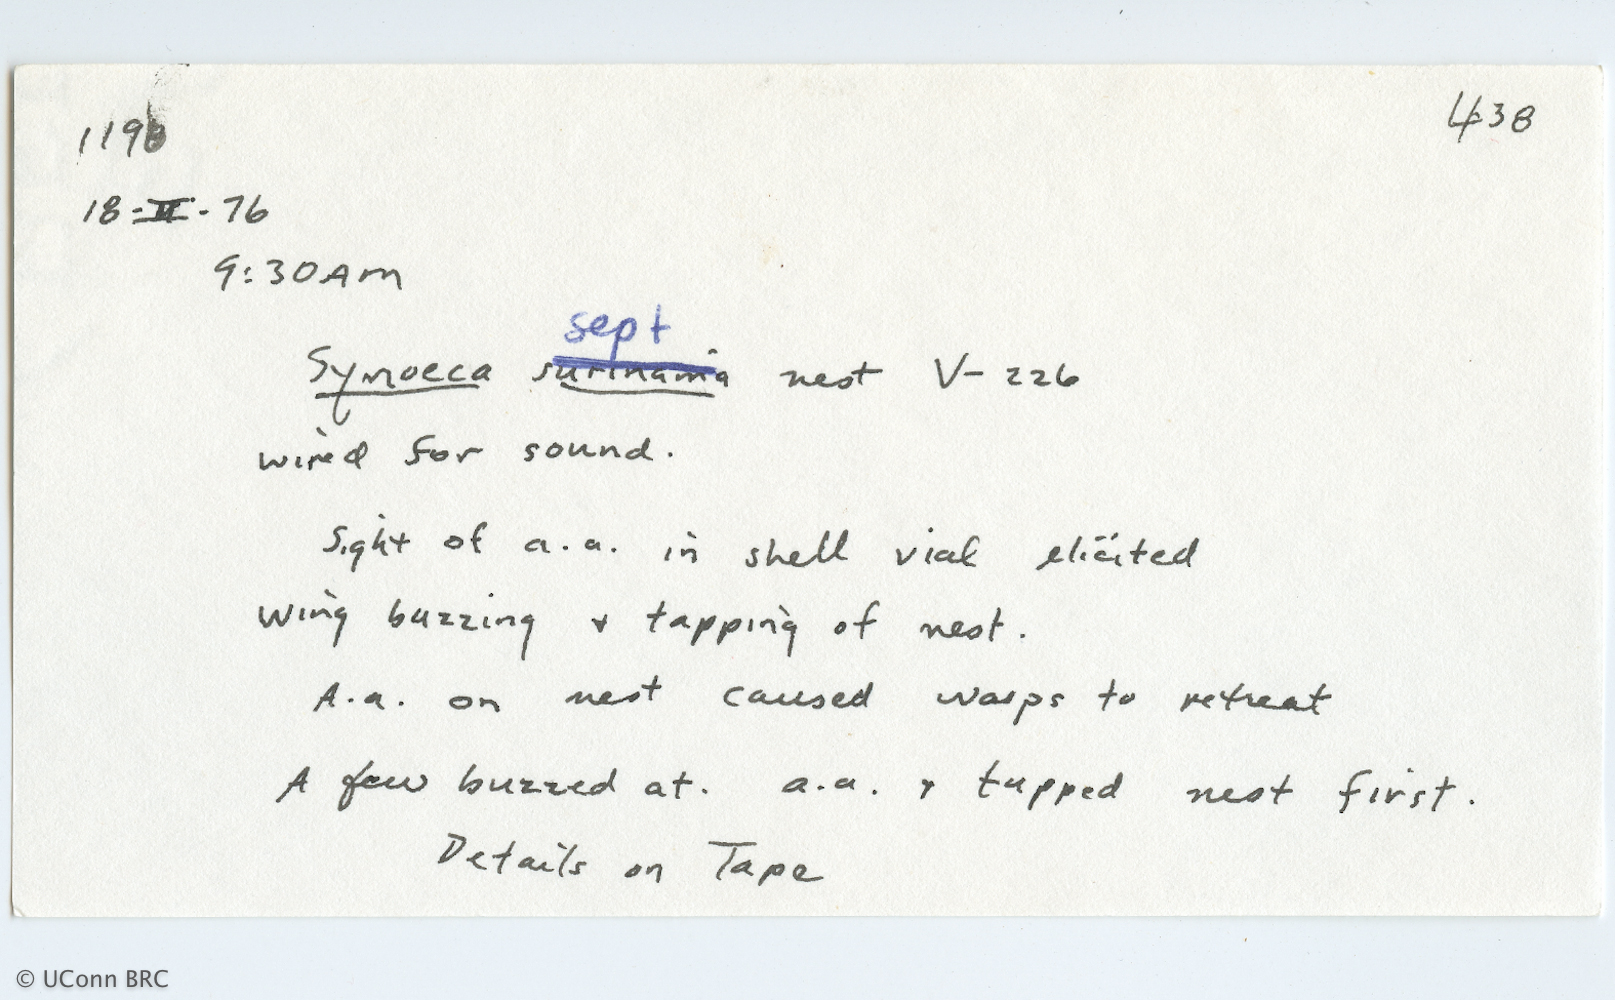 119
438
18-II-76
9:30AM
sept
Synoeca surinama nest V-226
wired for sound.
Sight of a.a. in shell vial elicited
wing buzzing & tapping of nest.
A.a. on nest caused wasps to retreat
A few buzzed at. a.a. & tapped nest first.
Details on Tape
© UConn BRC